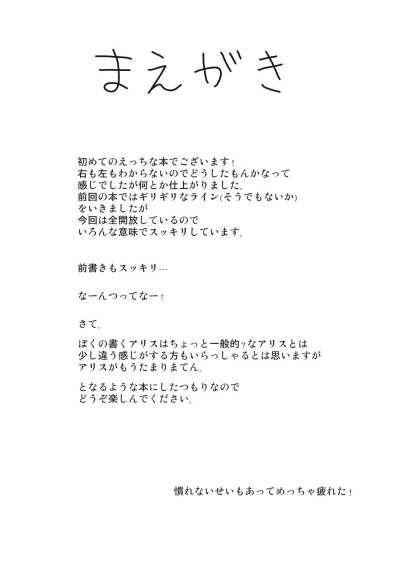 まえがき
初めてのえっちな本でございます!
右も左もわからないのでどうしたもんかなって
感じでしたが何とか仕上がりました。
前回の本ではギリギリなライン(そうでもないか)
をいきましたが
今回は全開放しているので
いろんな意味でスッキリしています。
前書きもスッキリ…
なーんつってなー!
さて。
ぼくの書くアリスはちょっと一般的?なアリスとは
少し違う感じがする方もいらっしゃるとは思いますが
アリスがもうたまりまてん。
となるような本にしたつもりなので
どうぞ楽しんでください。
慣れないせいもあってめっちゃ疲れた!